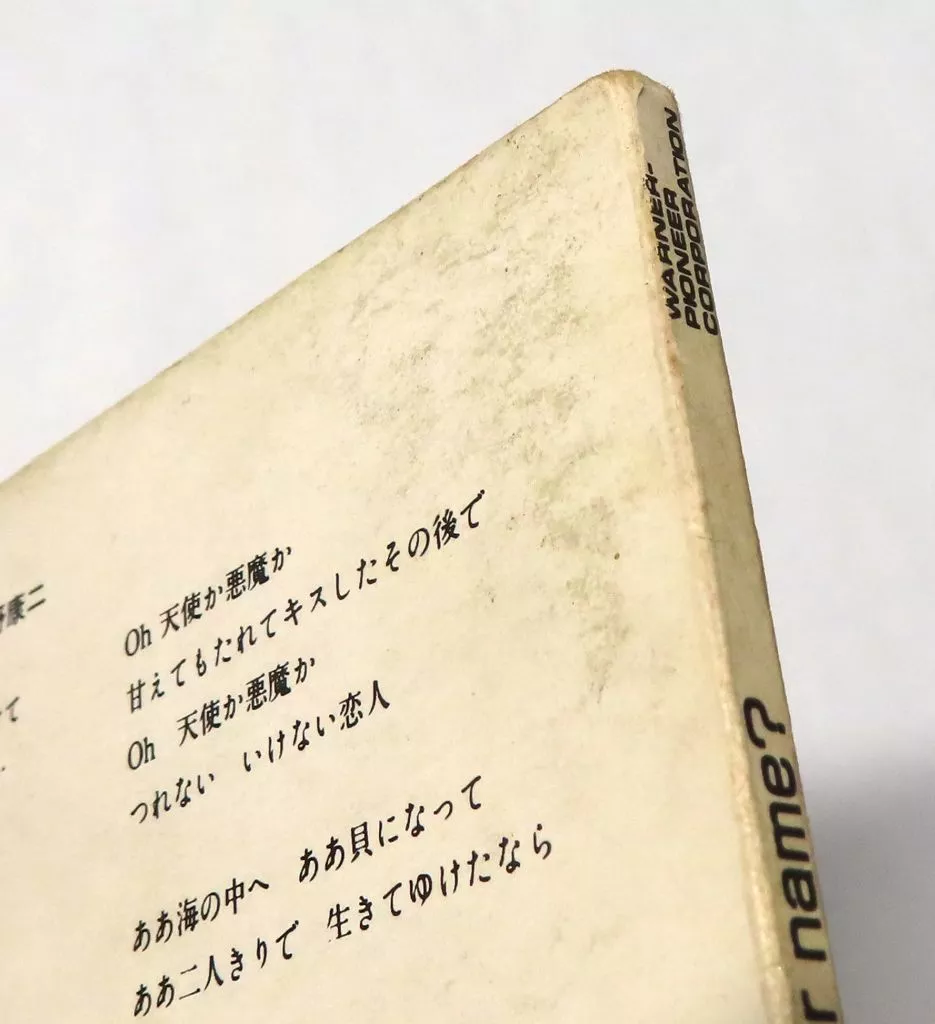 康二
て
Oh 天使か悪魔か
甘えてもたれてキスしたその後で
Oh 天使か悪魔か
つれない いけない恋人
ああ海の中へ ああ貝になって
ああ二人きりで 生きてゆけたなら
WARNER-
PIONEER
CORPORATION
r name?